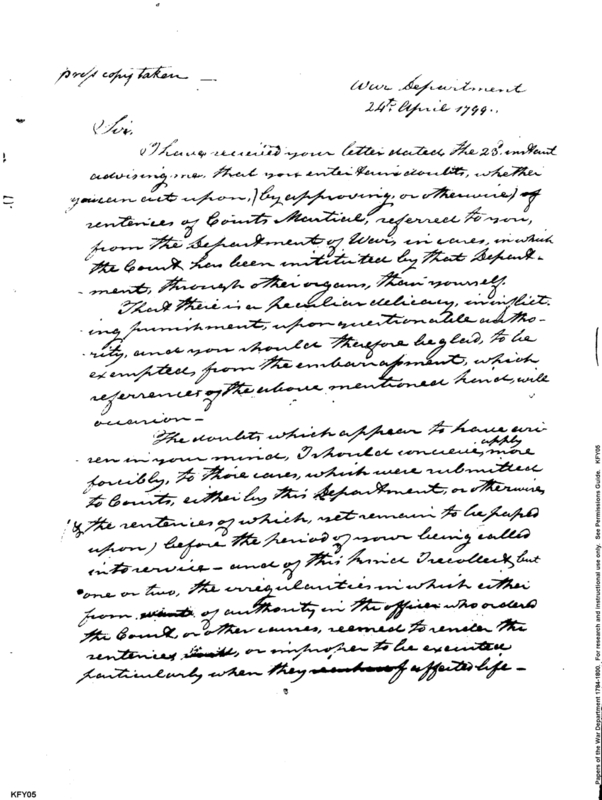 press copy taken —
War Department
24th April 1799.
Sir.
I have received your letter dated the 23d. instant
advising me that you entertain doubts, whether
you can act upon, (by approving, or otherwise) of
sentences of Courts Martial, referred to you,
from the Department of War, in cases, in which
the Court has been instituted by that Depart-
-ment, through other organs, than yourself.
That there is a peculiar delicacy, in inflict-
-ing punishment, upon questionable autho-
-rity, and you should therefore be glad, to be
exempted, from the embarrassment, which
references of the above mentioned kind, will
occasion —
The doubts which appear to have ari-
sen in your mind, I should conceive, apply more
forcibly, to those cases, which were submitted
to Courts, either by this Department, or otherwise,
(& the sentences of which, yet remain to be passed
upon) before the period of your being called
into service — and of this kind I recollect, but
one or two, the irregularities in which either
from want of authority in the officer who ordered
the Court, or other causes, seemed to render the
sentences, or improper to be executed
particularly when they affected life —
KFY05
Papers of the War Department 1784-1800. For research and instructional use only. See Permissions Guide. KFY05